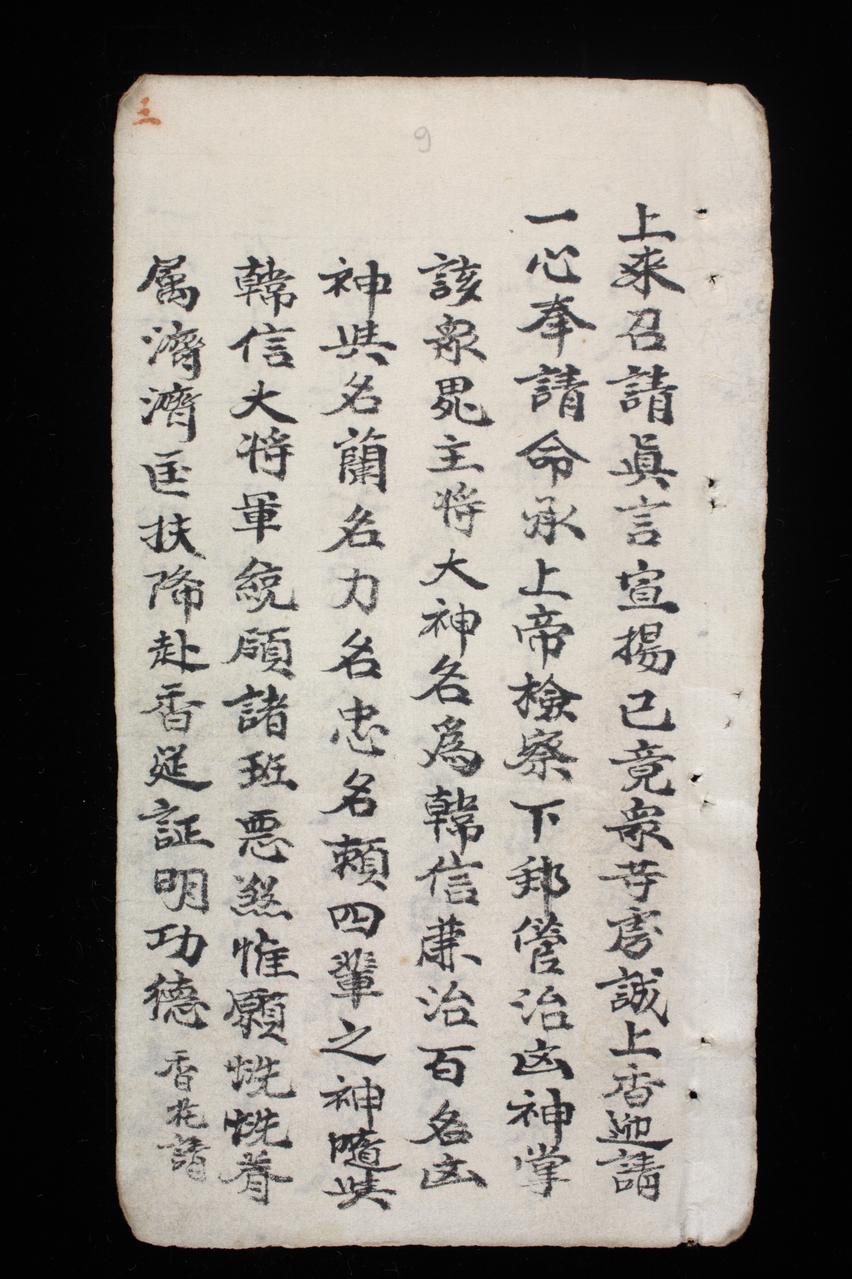 三
9
上來召請眞言宣揚已竟衆等虔誠上香迎請
一心奉請命承上帝檢察下邦管治凶神掌
該衆鬼主將大神名爲韓信兼治百名凶
神其名蘭名力名忠名賴四輩之神隨其
韓信大將軍統領諸班惡煞惟願恍恍眷
属濟濟匡扶降赴香筵証明功德 香花請